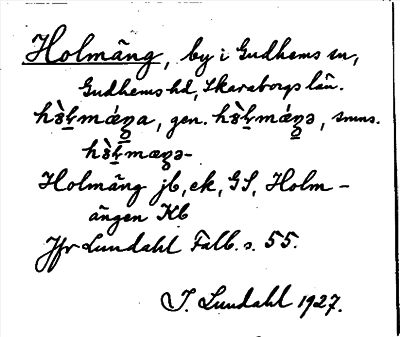 Holmäng, by i Gudhems sn,
Gudhems hd, Skaraborgs län.
gen. smns.
Holmäng jb, ek, GS, Holm-
ängen Kb
Jfr Lundahl Falb. s. 55.
I. Lundahl 1927.